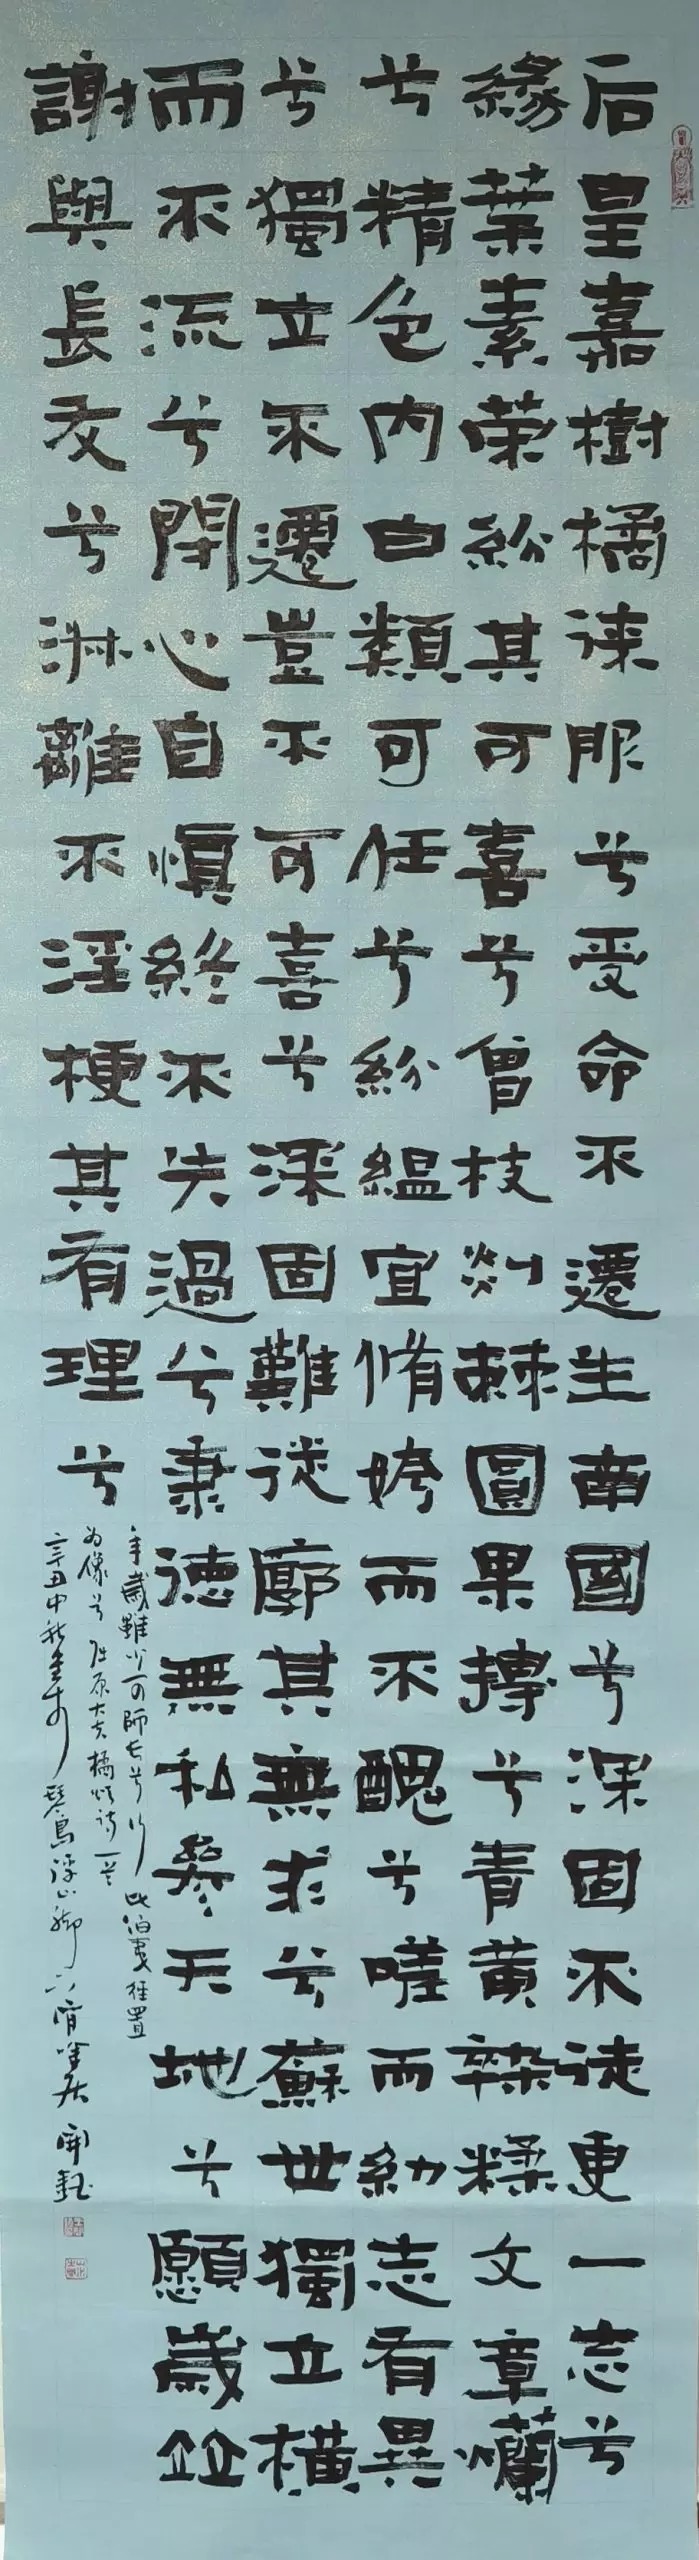 后皇嘉樹橘徕服兮受命不遷生南國兮深固不徙更一志兮
緣葉素荣紛其可喜兮曾枝剡棘圓果摶兮青黄雜糅文章爛
兮精色内白類可任兮紛緼宜脩姱而不醜兮嗟而幼志有異
兮獨立不遷豈不可喜兮深固難徙廓其無求兮蘇世獨立橫
而不流兮閉心自慎終不失過兮秉德無私參天地兮願歲竝
謝與長友兮淋離不淫梗其有理兮
年歲雖少可師長兮行比伯夷置
为像兮屈原大夫橘颂詩一首
辛丑中秋琴島浮山